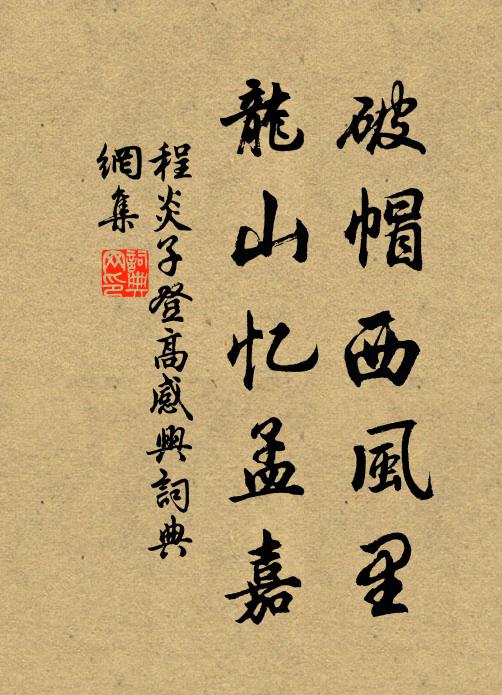 破帽西風里
龍山忆孟嘉
程炎子登高感興詞典
網集
詞典
网印